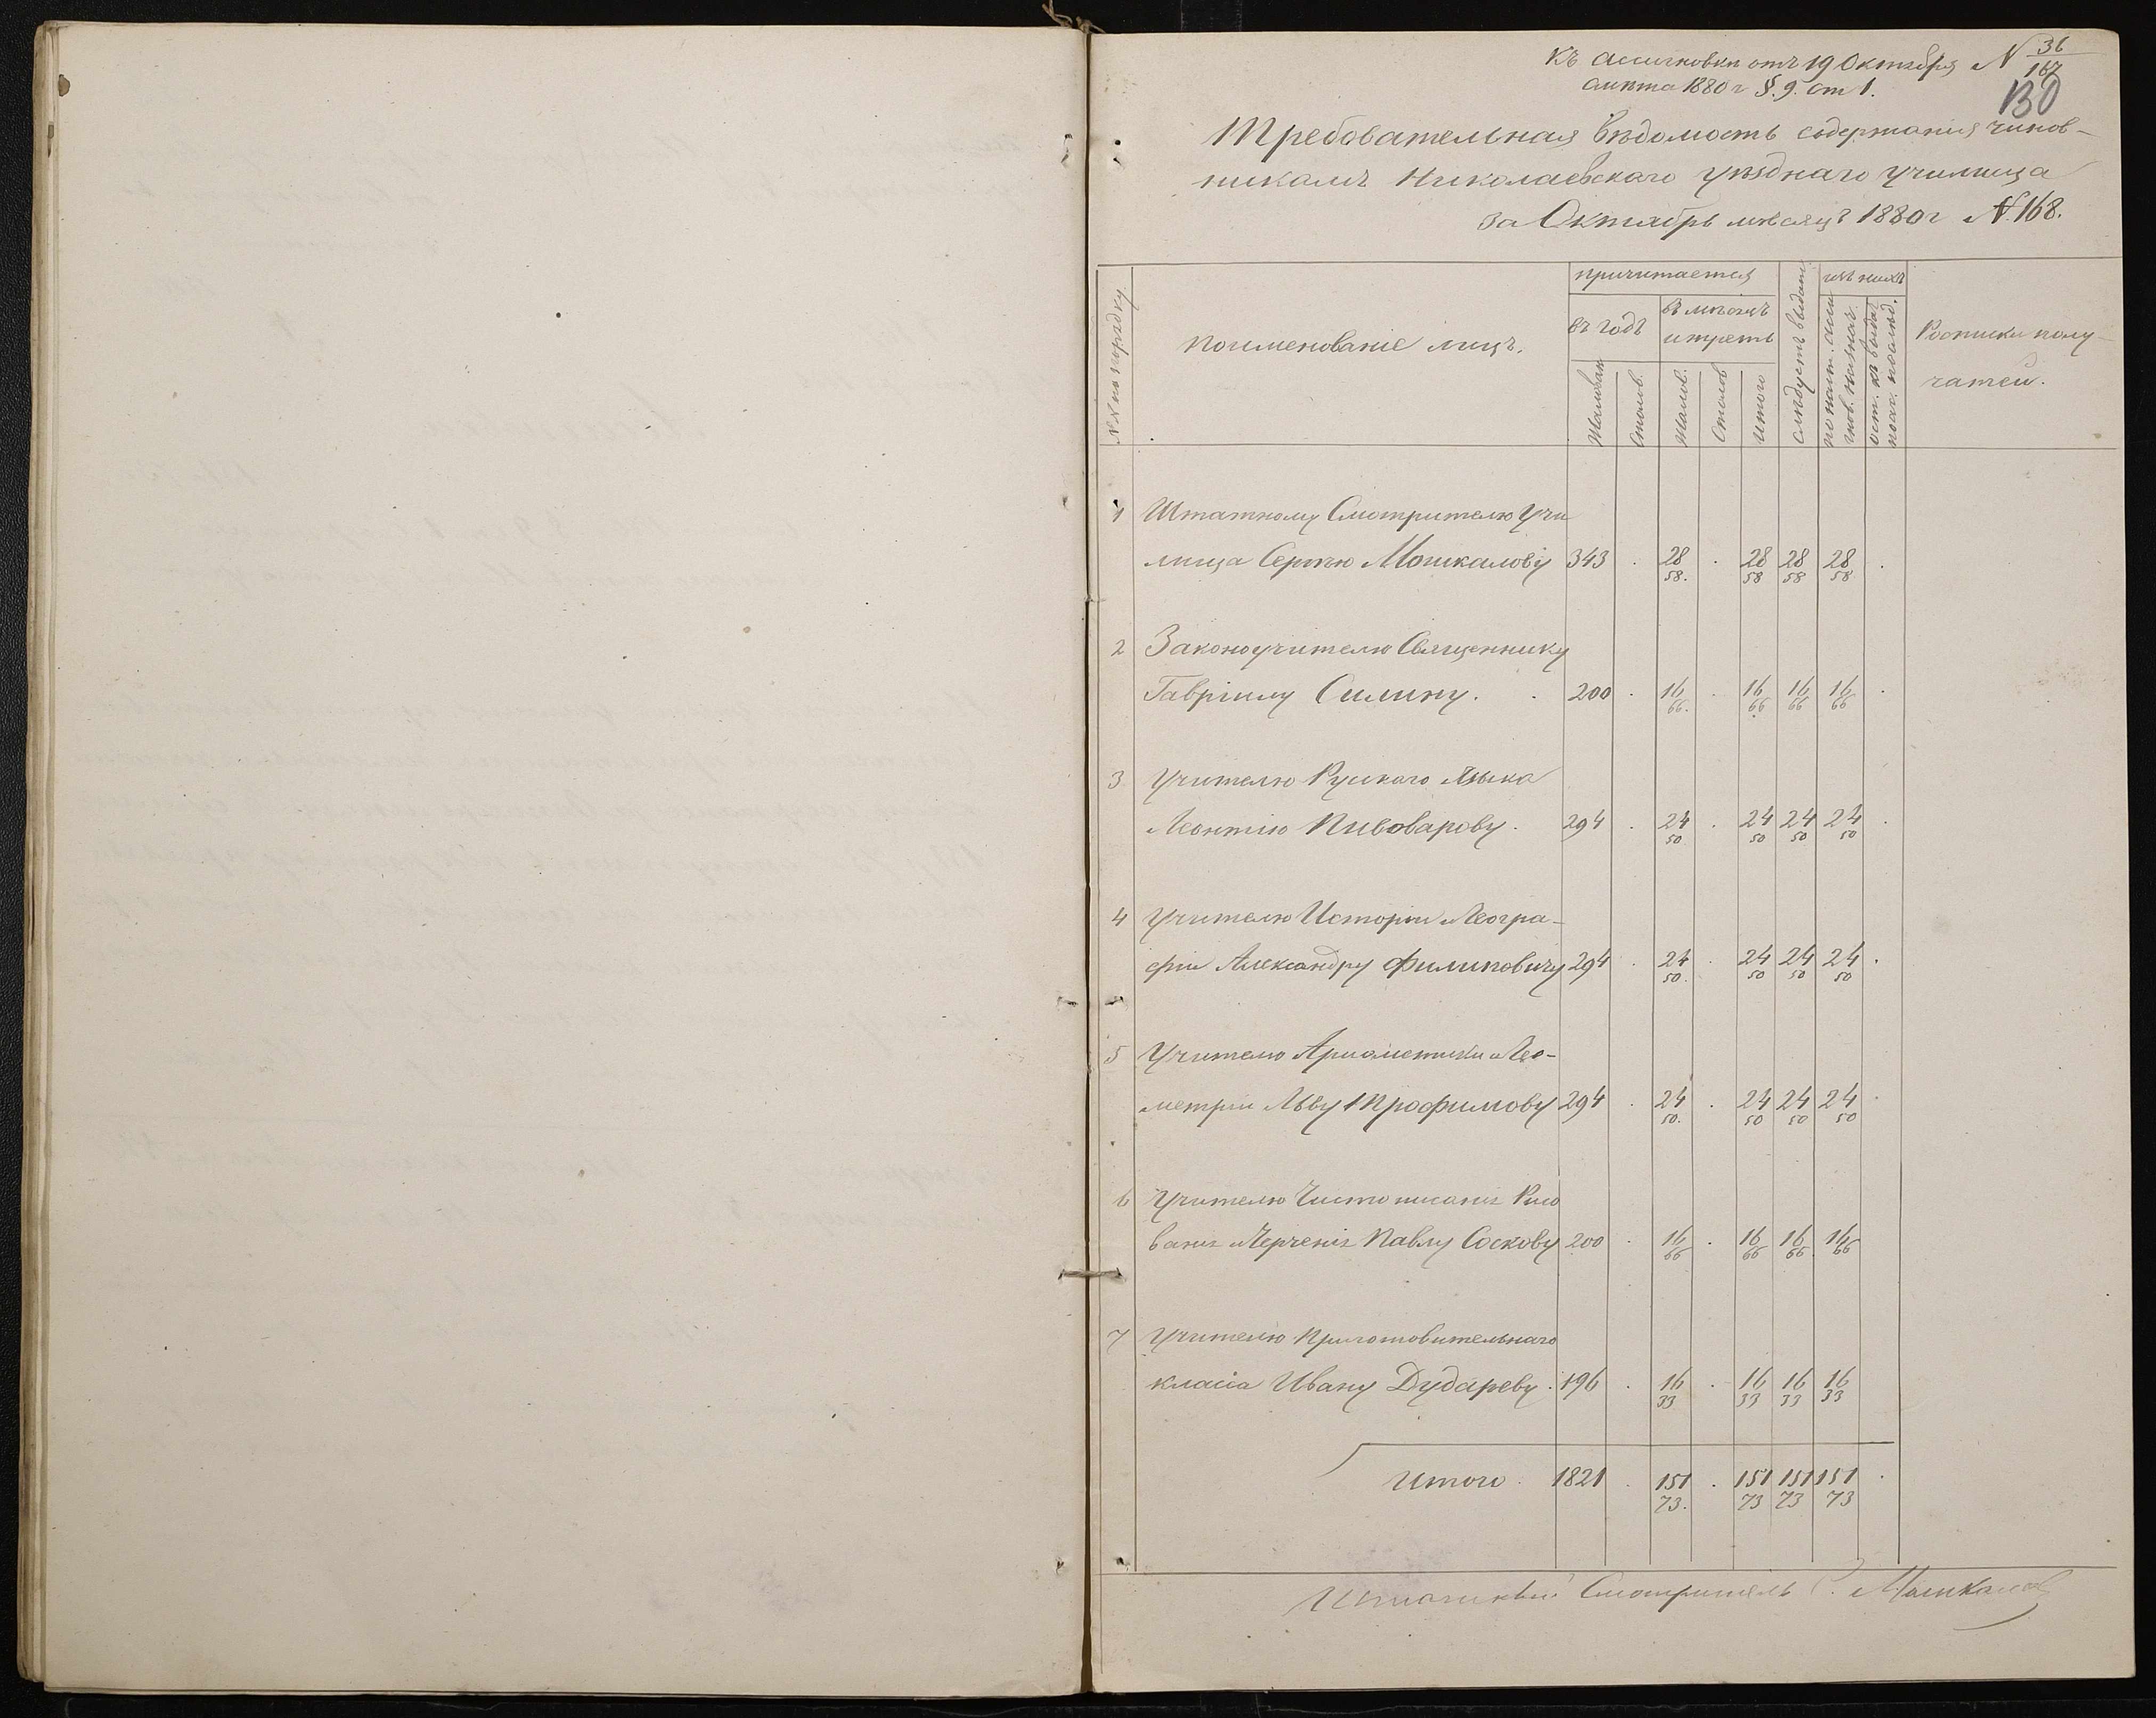 Къ ассигновки отъ 19 Октября N 36/167
смета 1880 г §. 9. ст 1.
130
Требовательная вѣдомость содержанія чинов-
никамъ Николаевскаго уѣзднаго училища
за Октябрь мѣсяцъ 1880 г N. 168.
NN по порядку
Поименованіе лицъ.
Причитается
въ годъ
въ мѣсяцъ
и треть
Жалован
Столов.
Жалов.
Столов
Итого
слѣдуетъ выдать
изъ нихъ
по наст. асси
гнов. назнач.
ост. къ выдач
Росписки полу-
чателей.
1 Штатному Смотрителю Учи
лища Сергѣю Мошкалову 343 . 28 58. . 28 58 28 58 28 58 .
2 Законоучителю Священнику
Гавріилу Силину. . 200 . 16 66. . 16 66 16 66 16 66 .
3 Учителю Рускаго Языка
Леонтію Пивоварову. 294 . 24 50 . 24 50 24 50 24 50 .
4 Учителю Исторіи и Геогра-
фіи Александру Филиповичу 294 . 24 50. . 24 50 24 50 24 50 .
5 Учителю Ариѳметики и Гео-
метріи Льву Трофимову 294 . 24 50. . 24 50 24 50 24 50 .
6 Учителю Чистописанія Рисо
ванія и Черченія Павлу Соскову 200 . 16 66 . 16 66 16 66 16 66
7 Учителю Приготовительнаго
класса Ивану Дудареву . 196 . 16 33 . 16 33 16 33 16 33
Итого . 1821 . 151 73. . 151 73 151 73 151 73 .
Штатный Смотритель С. Мошкалов